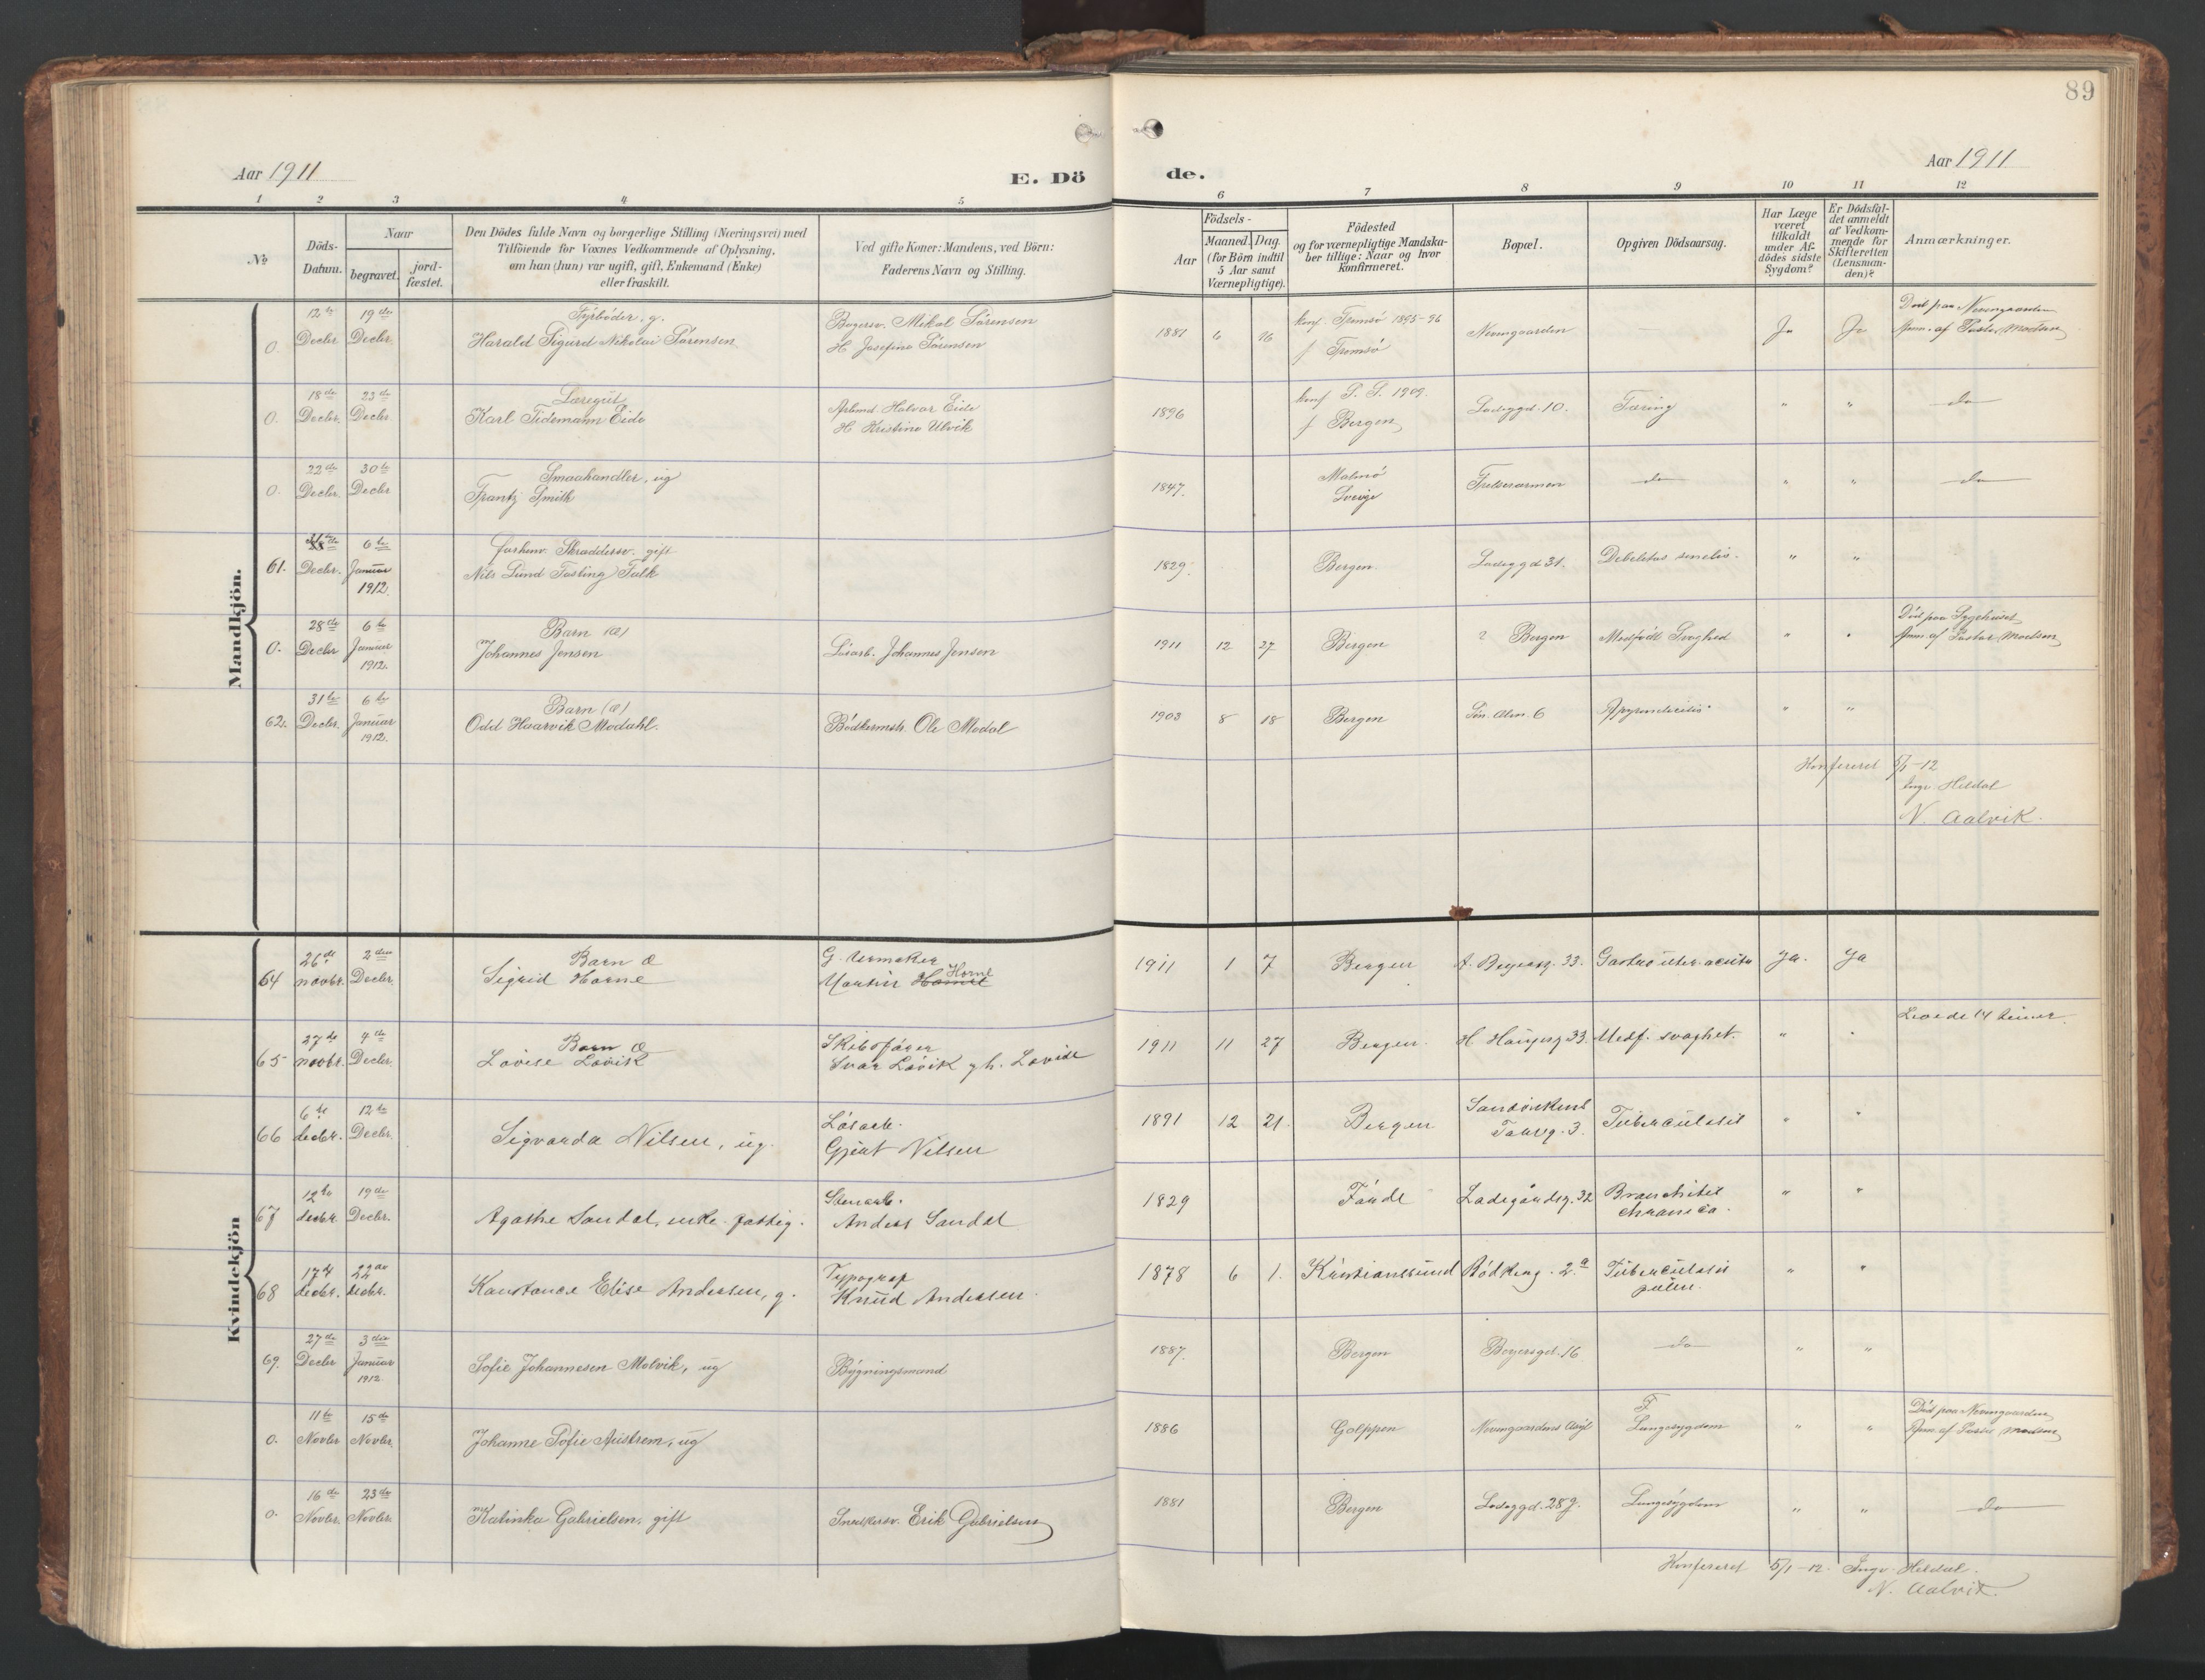 89
Aar 1911
E. Dö
de.
Aar 1911
1 2 3 4 5 6 7 8 9 10 11 12
No
Döds-
Datum.
Naar
begravet.
jord-
fæstet.
Den Dödes fulde Navn og borgerlige Stilling (Næringsvei) med
Tilföiende for Voxnes Vedkommende af Oplysning,
om han (hun) var ugift, gift, Enkemand (Enke)
eller fraskilt.
Ved gifte Koner: Mandens, ved Börn:
Faderens Navn og Stilling.
Födsels-
Aar
Maaned. Dag.
(for Börn indtil
5 Aar samt
Værnepligtige).
Födested
og for værnepligtige Mandska-
ber tillige: Naar og hvor
Konfirmeret.
Bopæl.
Opgiven Dödsaarsag.
Har Læge
været
tilkaldt
under Af-
dödes sidste
Sygdom?
Er Dödsfal-
det anmeldt
af Vedkom-
mende for
Skifteretten
(Lensman-
den)?
Anmærkninger.
Mandkjön.
0.
12te Decbr.
19de Decbr.
Fyrböder, g.
Harald Sigurd Nikolai Sörensen
Bagersv. Mikal Sörensen
H Josefine Sörensen
1881 6 16
konf. Tromsö 1895-96
f Tromsö
Nevengaarden
Ja
Ja
Död paa Nevengaarden
Anm. af Pastor Madsen
0.
18de Decbr.
23de Decbr.
Læregut
Karl Tidemann Eide
Arbmd. Halvor Eide
H Kristine Ulvik
1896
konf S. P. 1909.
f Bergen
Ladeggd. 10.
Tæring
" "
do
0.
22de Decbr.
30te Decbr
Smaahandler, ug
Frantz Smith
1847.
Malmö
Sverige
Frelsesarmen
do
" "
do
61.
Decbr.
6te Januar 1912.
forhenv. Skræddersv. gift
Nils Lund Fasting Falk
1829.
Bergen.
Ladeggd 31.
Debelitas senelis.
" "
0.
28de Decbr
6te Januar 1912.
Barn (Æ)
Johannes Jensen
Lösarb. Johannes Jensen
1911 12 27
Bergen
? Bergen
Medfödt Svaghed
" "
Död paa Sygehuset
Anm. af Pastor Madsen
62.
31te Decbr.
6te Januar 1912.
Barn (Æ)
Odd Haarvik Modahl.
Bödkermstr. Ole Modal
1903 8 18
Bergen
Appendicitis
" "
Konfereret 5/1-12
Ingv. Heldal
N. Aalvik.
Kvindekjön
64
26de novbr.
2den Decbr.
Barn Æ
Sigrid Horne
G. Urmaker
Martin Horne
1911 1 7
Bergen
A. Beyersg. 33.
Gastro enter. acuta
Ja.
Ja
65
27de novbr.
4de Decbr.
Barn Æ
Lovise Lövik
Skibsförer
Ivar Lövik gh. Lovise
1911 11 27
Bergen.
H. Haugesg 33.
Medf. svaghet.
" "
Levede 14 timer.
66
6te decbr.
12te Decbr.
Sigvarda Nilsen, ug.
Lösarb.
Gjert Nilsen
1891 12 21.
Bergen
Sandvikens
Torvg. 3.
Tuberculosis
" "
67
12te decbr.
19de Decbr.
Agathe Sandal, enke. fattig.
Stenarb.
Anders Sandal
1829
Förde
Ladegårdsg. 32
Bronchites
chronica.
" "
68
17de decbr.
22de decbr.
Konstance Elise Andersen, g.
Typograf
Knud Andersen.
1878 6 1.
Kristianssund
Bödkerg. 2a
Tuberculosis
pulm.
" "
69.
27de Decbr
3die Januar 1912.
Sofie Johannesen Molvik, ug
Bygningsmand
1887.
Bergen
Beyersgd. 16
do
" "
0.
11te Novbr
15de Novbr.
Johanne Sofie Austrem, ug
1886
Golppen
Nevengaardens Asyl
F.
Lungesygdom
" "
Död paa Nevengaarden
Anm. af Pastor Madsen
0.
16de Novbr.
23de Novbr.
Katinka Gabrielsen, gift
Snedkersv. Erik Gabrielsen
1881
Bergen
Ladeggd. 28g.
Lungesygdom
" "
do
Konfereret 5/1-12. Ingv. Heldal.
N. Aalvik.